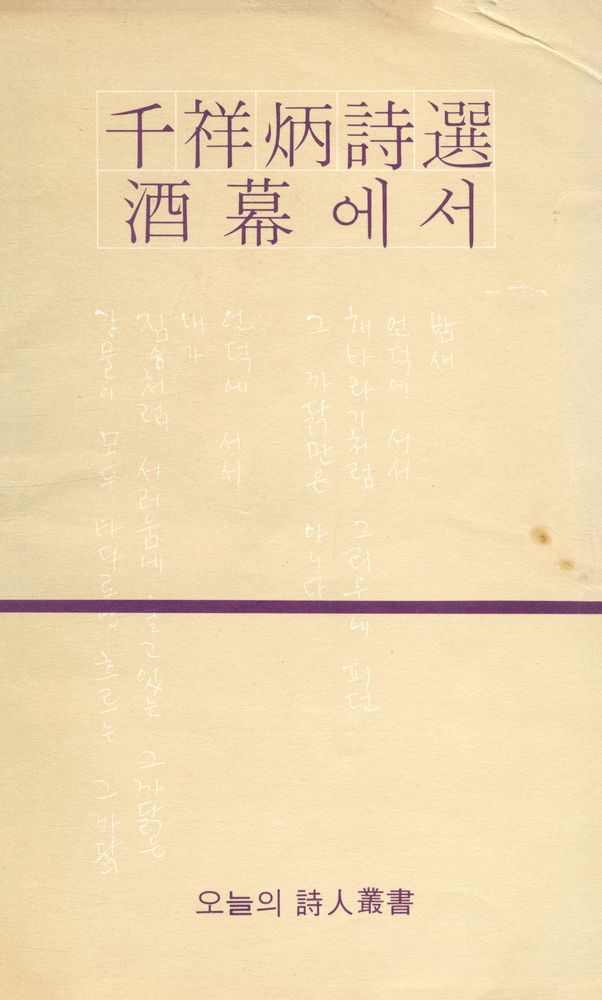 千祥炳詩選
酒幕에서
밤새
언덕에 서서
해바라기처럼 그리움에 피던
그 까닭만은 아니다
언덕에 서서
내가
짐승처럼 서러움에 울고있는 그 까닭은
강물이 모두 바다로만 흐르는 그 까닭
오늘의 詩人叢書